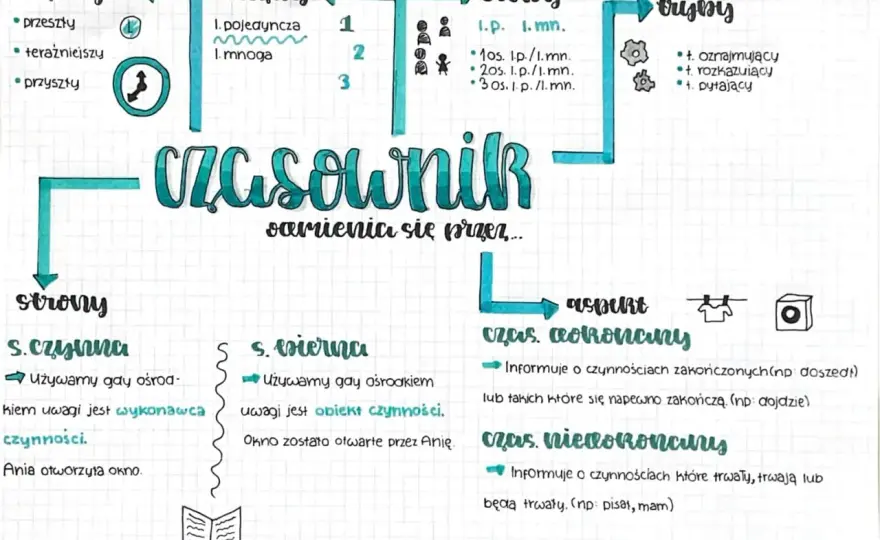 tryby
• przeszły
• teraźniejszy
• przyszły
l. pojedyncza
l. mnoga
1
2
3
l.p. l.mn.
• 1os. l.p./l.mn.
• 2os. l.p./l.mn.
• 3os. l.p./l.mn.
• t. oznajmujący
• t. rozkazujący
• t. pytający
czasownik
odmienia się przez...
strony
s. czynna
Używamy gdy ośrod-
kiem uwagi jest wykonawca
czynności.
Ania otworzyła okno.
s. bierna
Używamy gdy ośrodkiem
uwagi jest obiekt czynności.
Okno zostało otwarte przez Anię.
aspekt
czas. dokonany
Informuje o czynnościach zakończonych (np: doszedł)
lub takich które się napewno zakończą. (np: dojdzie)
czas. niedokonany
Informuje o czynnościach które trwały, trwają lub
będą trwały. (np: pisał, mam)